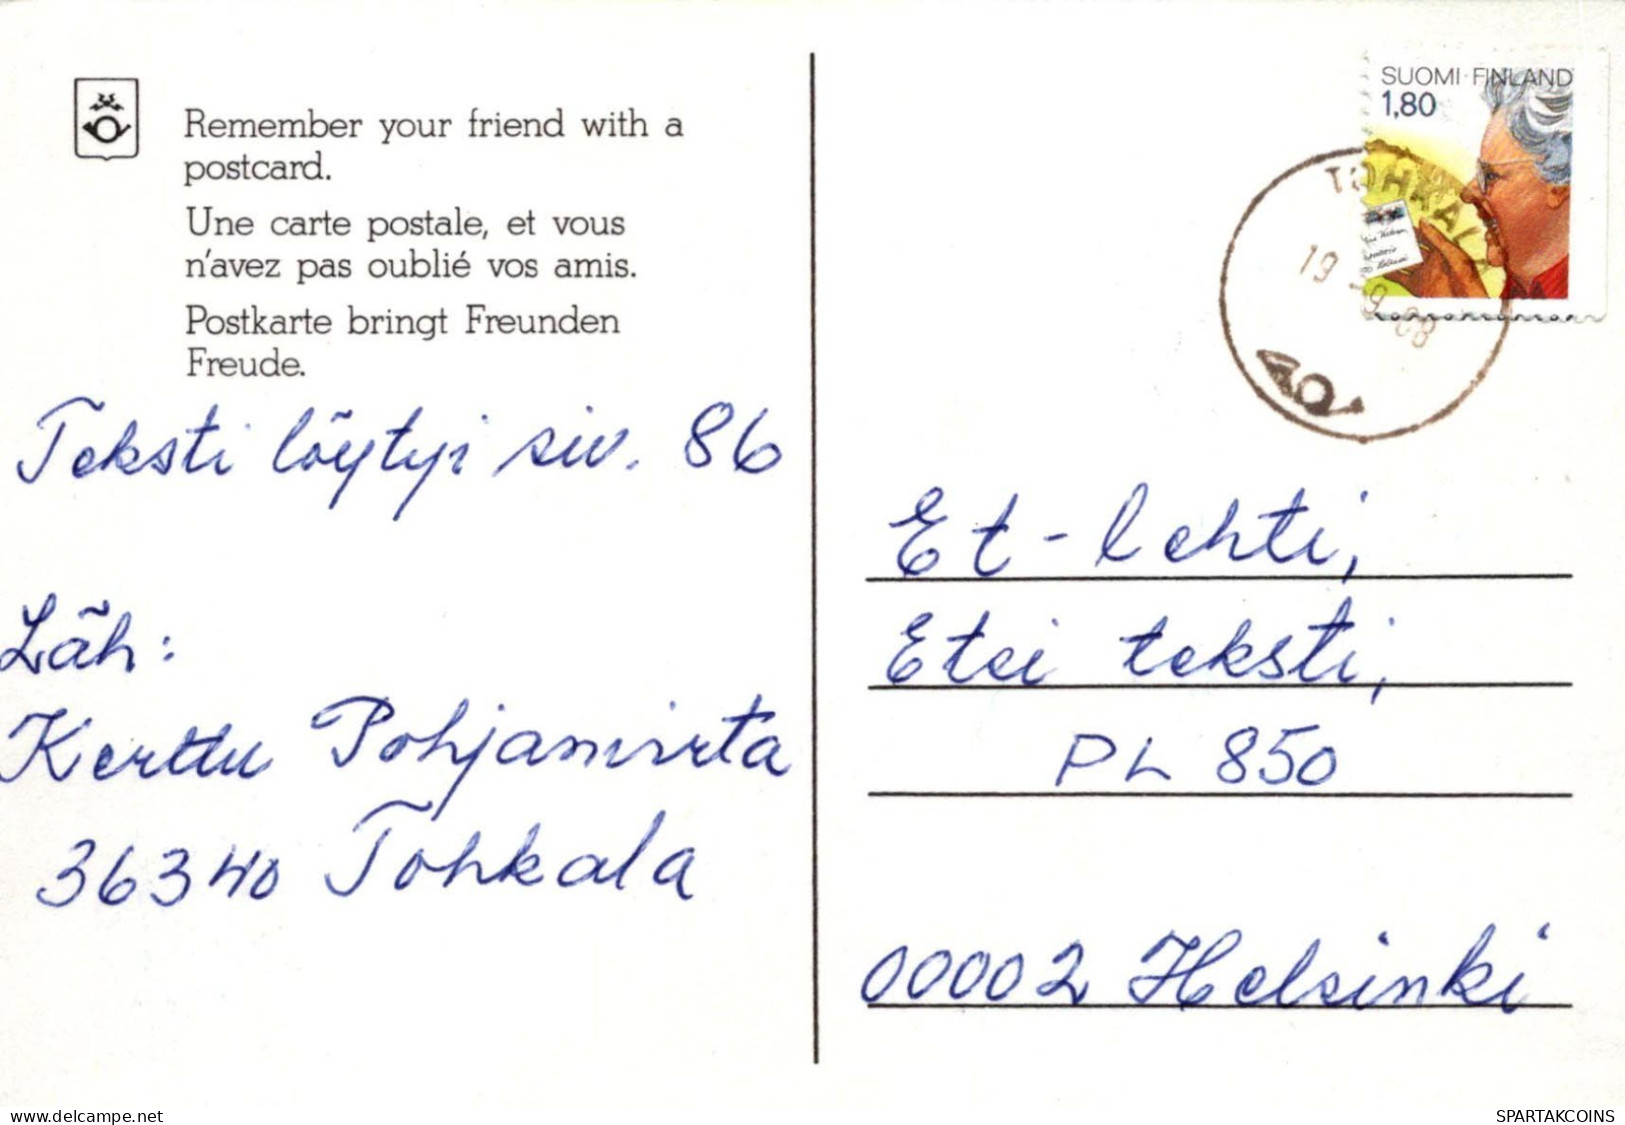 Remember your friend with a
postcard.
Une carte postale, et vous
n'avez pas oublié vos amis.
Postkarte bringt Freunden
Freude.
Teksti löytyi siv. 86
Läh:
Kerttu Pohjanvirta
36340 Tohkala
SUOMI·FINLAND
1,80
TOHKALA
19 -9 88
Et-lehti,
Etsi teksti,
PL 850
00002 Helsinki
www.delcampe.net
SPARTAKCOINS